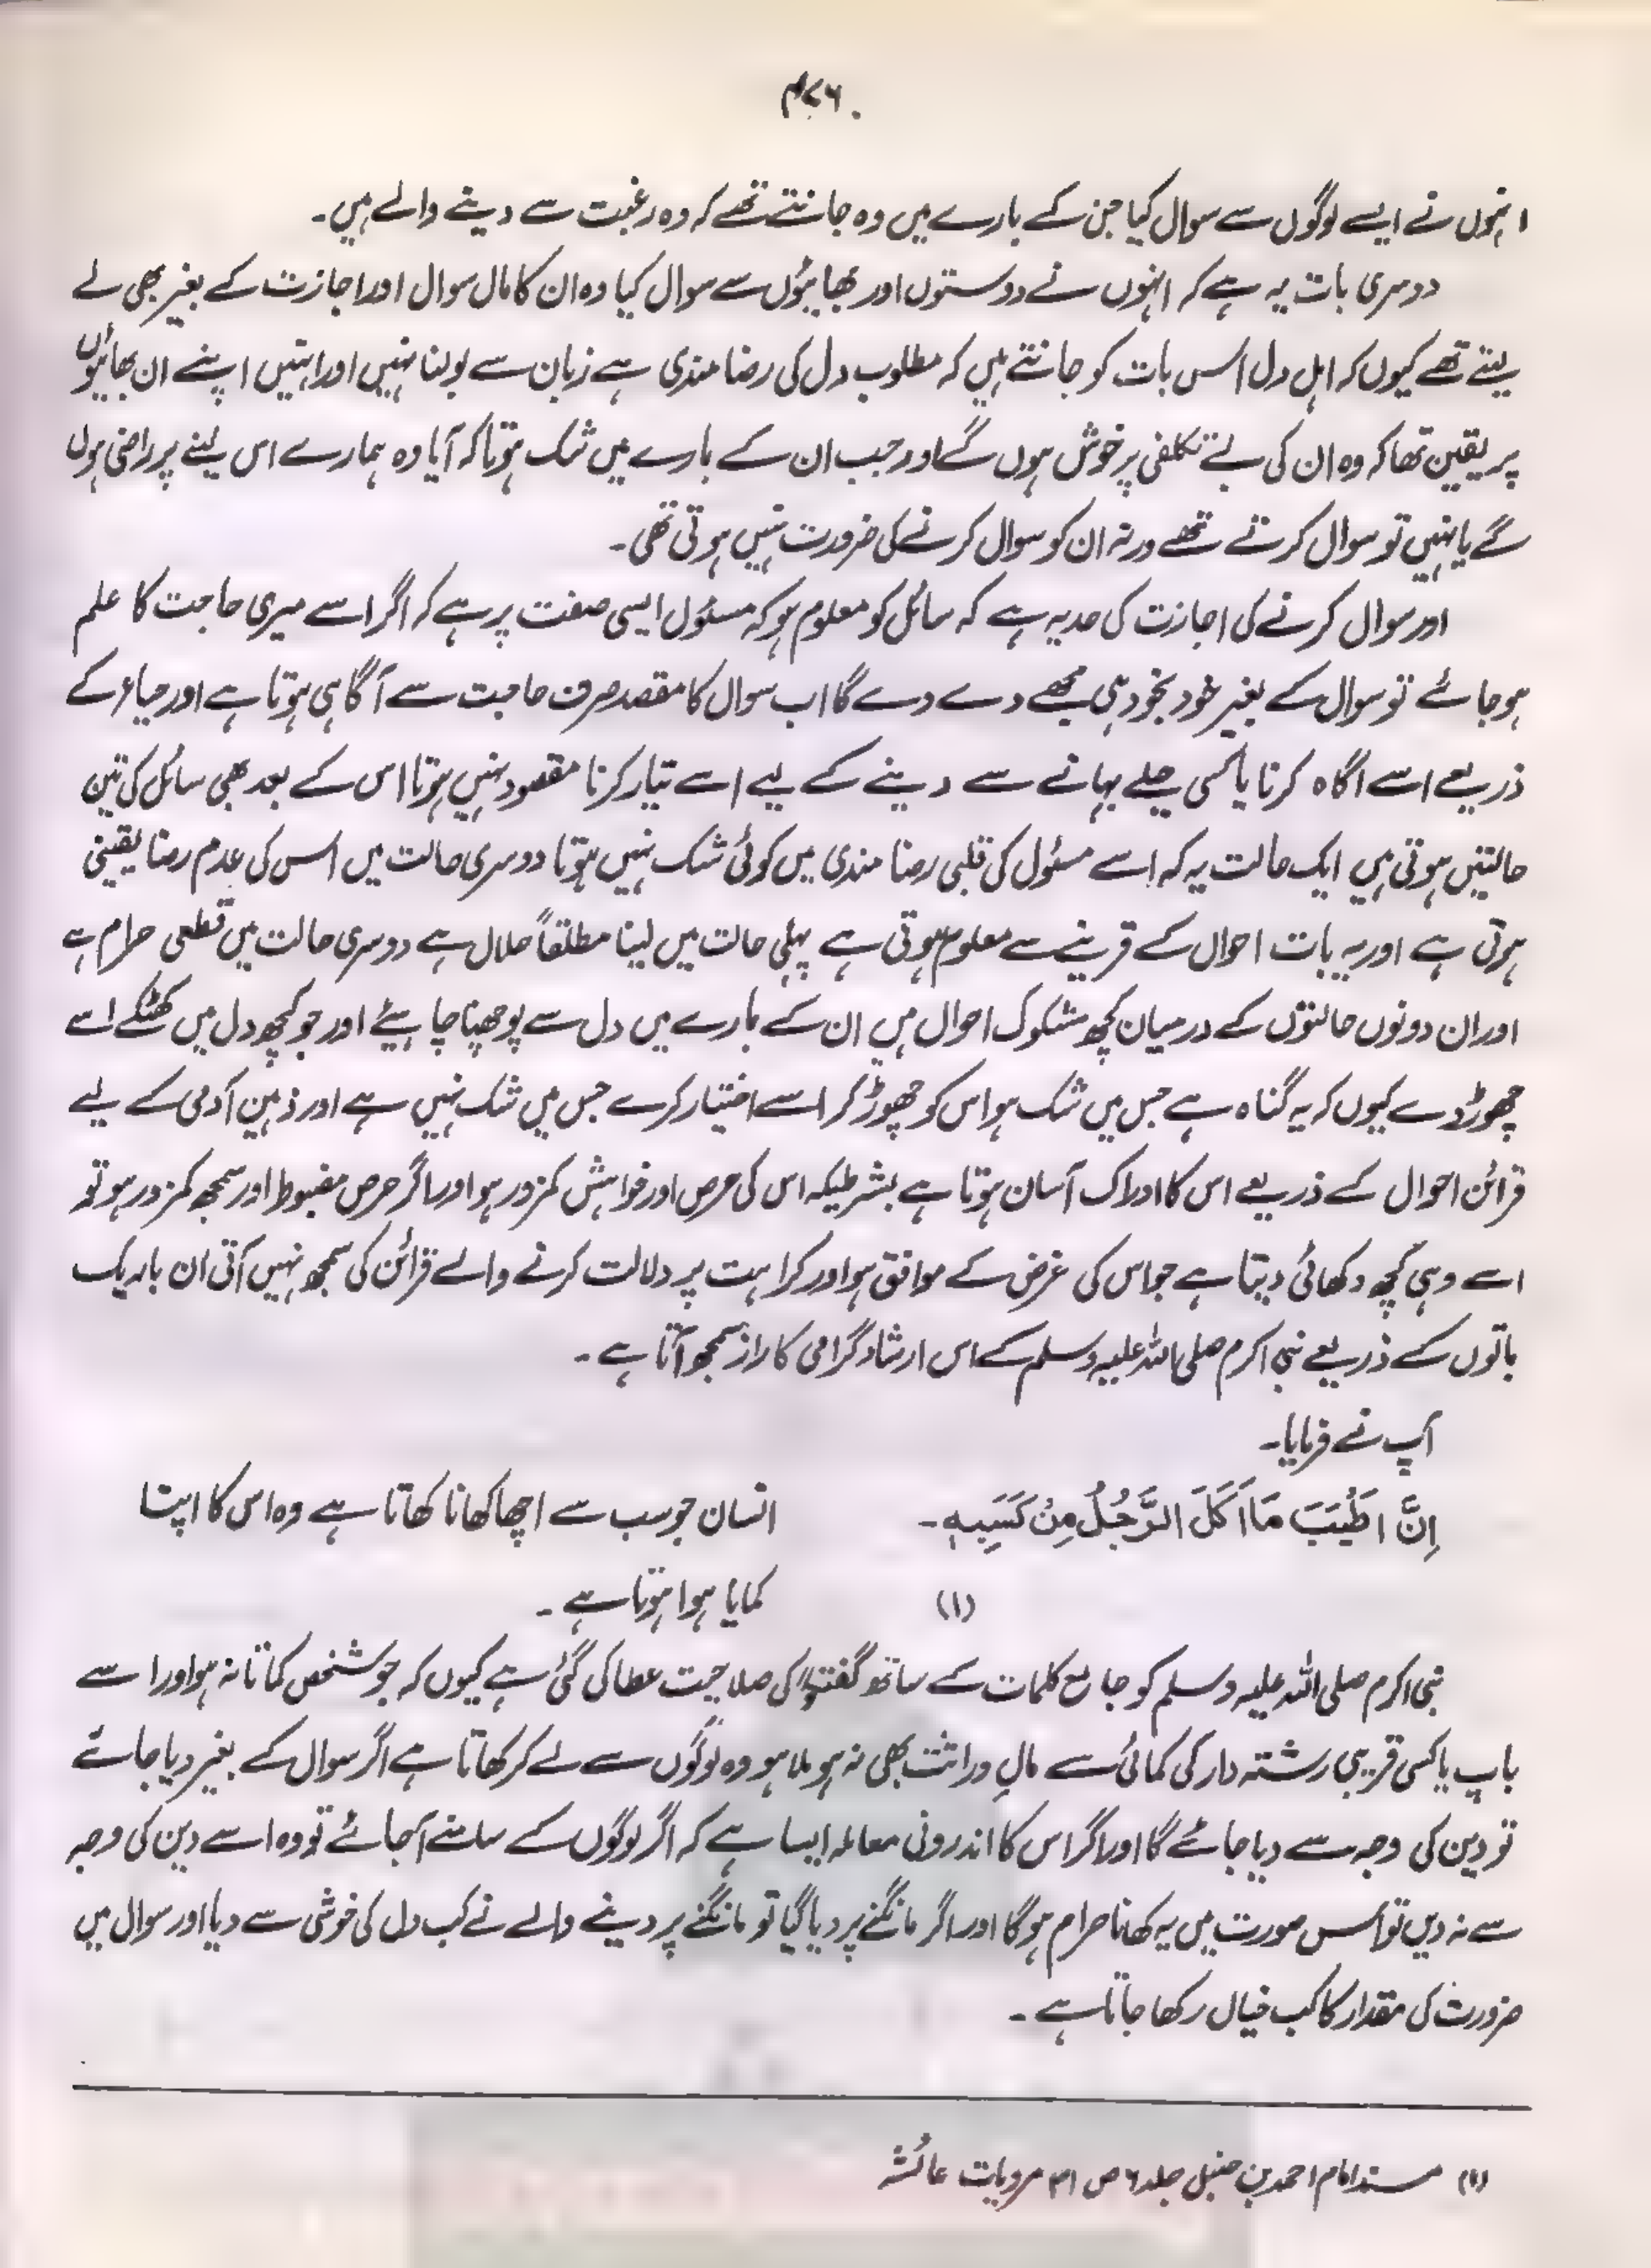 ۴۷۶
انہوں نے ایسے لوگوں سے سوال کیا جن کے بارے میں وہ جانتے تھے کہ وہ رغبت سے دینے والے ہیں۔
دوسری بات یہ ہے کہ انہوں نے دوستوں اور بھائیوں سے سوال کیا وہ ان کا مال سوال اور اجازت کے بغیر بھی لے
لیتے تھے کیوں کہ اہل دل اس بات کو جانتے ہیں کہ مطلوب دل کی رضا مندی ہے زبان سے بولنا نہیں اور انہیں اپنے ان بھائیوں
پر یقین تھا کہ وہ ان کی بے تکلفی پر خوش ہوں گے اور جب ان کے بارے میں شک ہوتا کہ آیا وہ ہمارے اس لینے پر راضی ہوں
گے یا نہیں تو سوال کرتے تھے ورنہ ان کو سوال کرنے کی ضرورت نہیں ہوتی تھی۔
اور سوال کرنے کی اجازت کی حد یہ ہے کہ سائل کو معلوم ہو کہ مسئول ایسی صفت پر ہے کہ اگر اسے میری حاجت کا علم
ہو جائے تو سوال کے بغیر خود بخود ہی مجھے دے دے گا اب سوال کا مقصد صرف حاجت سے آگاہی ہوتا ہے اور حیاء کے
ذریعے اسے آگاہ کرنا یا کسی حیلے بہانے سے دینے کے لیے اسے تیار کرنا مقصود نہیں ہوتا اس کے بعد بھی سائل کی تین
حالتیں ہوتی ہیں ایک حالت یہ کہ اسے مسئول کی قلبی رضا مندی میں کوئی شک نہیں ہوتا دوسری حالت میں اس کی عدم رضا یقینی
ہوتی ہے اور یہ بات احوال کے قرینے سے معلوم ہوتی ہے پہلی حالت میں لینا مطلقاً حلال ہے دوسری حالت میں قطعی حرام ہے
اور ان دونوں حالتوں کے درمیان کچھ مشکوک احوال ہیں ان کے بارے میں دل سے پوچھنا چاہیئے اور جو کچھ دل میں کھٹکے اسے
چھوڑ دے کیوں کہ یہ گناہ ہے جس میں شک ہو اس کو چھوڑ کر اسے اختیار کرے جس میں شک نہیں ہے اور ذہین آدمی کے لیے
قرائن احوال کے ذریعے اس کا ادراک آسان ہوتا ہے بشرطیکہ اس کی حرص اور خواہش کمزور ہو اور اگر حرص مضبوط اور سمجھ کمزور ہو تو
اسے وہی کچھ دکھائی دیتا ہے جو اس کی غرض کے موافق ہو اور کراہت پر دلالت کرنے والے قرائن کی سمجھ نہیں آتی ان باریک
باتوں کے ذریعے نبی اکرم صلی اللہ علیہ وسلم کے اس ارشاد گرامی کا راز سمجھ آتا ہے۔
آپ نے فرمایا۔
اِنَّ اَطْیَبَ مَا اَکَلَ الرَّجُلُ مِنْ کَسَبِہٖ۔
(۱)
انسان جو سب سے اچھا کھانا کھاتا ہے وہ اس کا اپنا
کمایا ہوا ہوتا ہے۔
نبی اکرم صلی اللہ علیہ وسلم کو جامع کلمات کے ساتھ گفتگو کی صلاحیت عطا کی گئی ہے کیوں کہ جو شخص کماتا نہ ہو اور اسے
باپ یا کسی قریبی رشتہ دار کی کمائی سے مالِ وراثت بھی نہ ہو ملا ہو وہ لوگوں سے لے کر کھاتا ہے اگر سوال کے بغیر دیا جائے
تو دین کی وجہ سے دیا جائے گا اور اگر اس کا اندرونی معاملہ ایسا ہے کہ اگر لوگوں کے سامنے آجائے تو وہ اسے دین کی وجہ
سے نہ دیں تو اس صورت میں یہ کھانا حرام ہوگا اور اگر مانگنے پر دیا گیا تو مانگنے پر دینے والے نے کب دل کی خوشی سے دیا اور سوال میں
ضرورت کی مقدار کا کب خیال رکھا جاتا ہے۔
(۱) مسند امام احمد بن حنبل جلد ۶ ص ۳۱ مرویات عائشہ